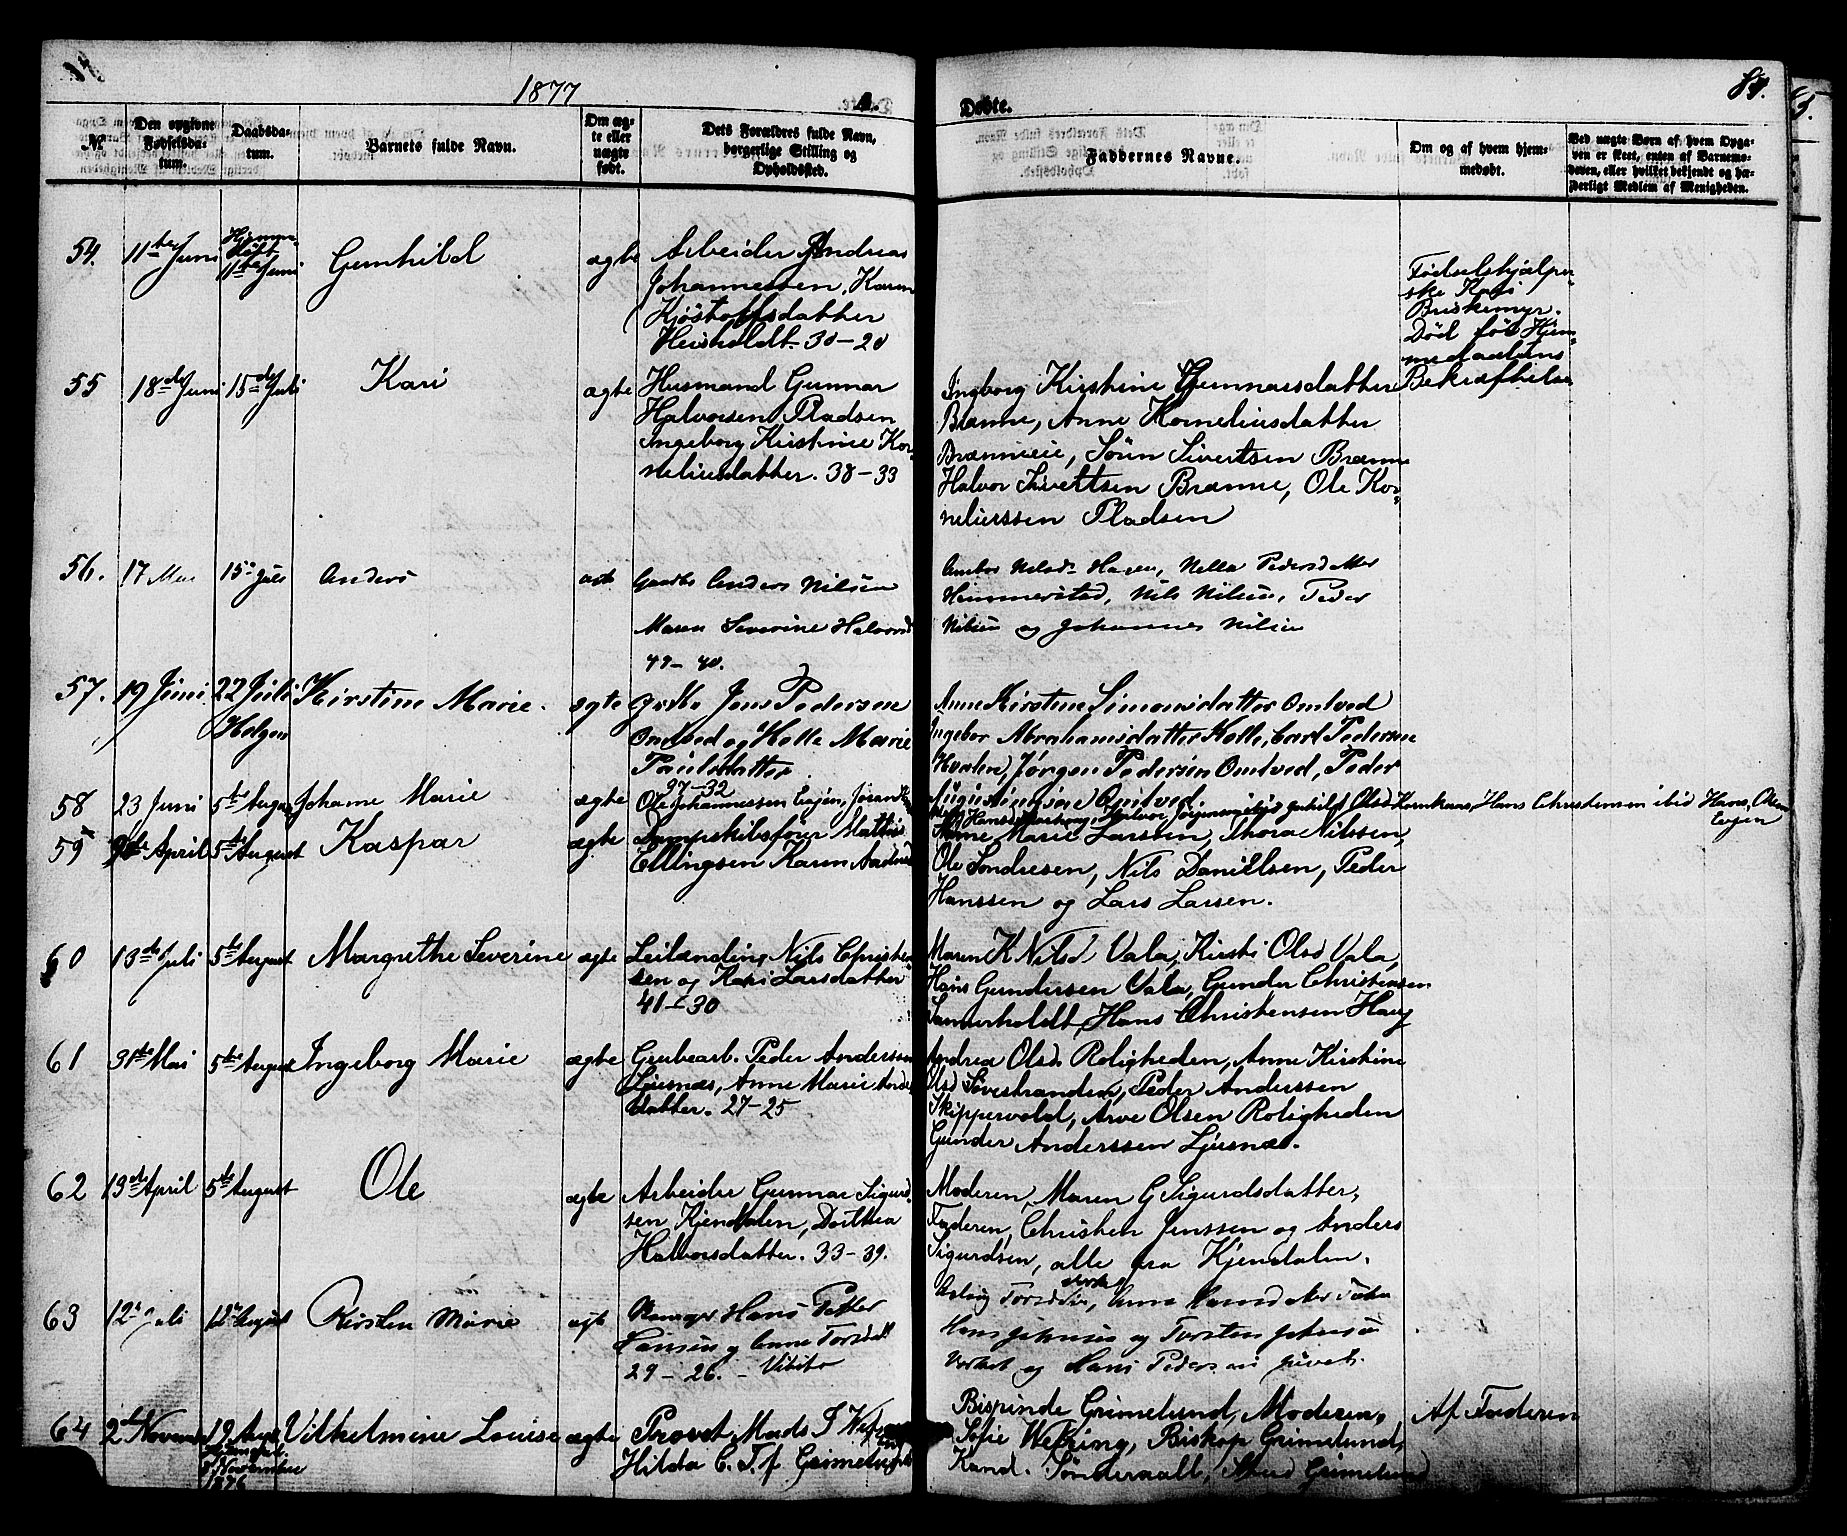 1877
Døbte.
84.
№
Den opgivne Fødselsdatum.
Daabsdatum.
Barnets fulde Navn.
Om ægte eller uægte født.
Dets Forældres fulde Navn, borgerlige Stilling og Opholdssted.
Faddernes Navne.
Om og af hvem hjemmedøbt.
Ved uægte Børn af hvem Opgaven er skeet, enten af Barnemoderen, eller hvilket bekjendt og hæderligt Medlem af Menigheden.
54.
11te Juni
Hjemmedøbt
11te Juni
Gunhild
ægte
Arbeider Andreas
Johannessen, Karen
Kjøstolfsdatter
Heisholdt 30-20
Fødselshjælper-
ske Kari
Briskemyr.
Død før Hjem-
medaabens
Bekræftelse
55
18de Juni
15de Juli
Kari
ægte
Husmand Gunnar
Halvorsen Pladsen
Ingeborg Kirstine Kor-
neliusdatter. 38-33
Ingborg Kirstine Gunnarsdatter
Brænne, Anne Korneliusdatter
Brænneie, Søren Sivertsen Brænne
Halvor Sivertsen Brænne, Ole Kor-
neliussen Pladsen
56.
17 Mai
15 Juli
Anders
ægt
Gaardbr Anders Nilsen
Maren Severine Halvorsd
49-40.
Nilsd Hagen, Nella Pedersdatter
Himmerstad, Nils Nilsen, Peder
Nilsen og Johannes Nilsen
57.
19 Juni
22 Juli
Helgen
Kirstine Marie.
ægte
Jens Pedersen
Omtved og Helle Marie
Paulsdatter
37-32
Anne Kirstine Simonsdatter Omtved
Ingebor Abrahamsdatter Kolle, Carl Pedersen
Hvalen, Jørgen Pedersen Omtved, Peder
Omtved.
58
23 Juni
5te August
Johanne Marie
ægte
Ole Johannessen Eiejen, Joran
Hans Christensen ibid Hans Olsen
Eiejen
59
April
5te August
Kaspar
ægte
Dampskibsfører Mathis
Ellingsen Karen
Anne Marie Larsen, Thora Nilssen,
Ole Sondresen, Nils Daniellsen, Peder
Hanssen og Lars Larsen.
60
13de Juli
5te August
Margrethe Severine
ægte
Leilænding Nils Christen-
sen og Kari Larsdatter
41-30
Maren K Nilsd Vala, Kirsti Olsd Vala,
Hans Gundersen Vala, Gunder Christensen
Hans Christensen Haug
61
31te Mai
5te August
Ingeborg Marie
ægte
Grubearb. Peder Anderssen
Ljusnæs, Anne Marie Anders
datter. 27-25
Andrea Olsd. Roligheden, Anne Kirstine
Olsd Søvestranden, Peder Anderssen
Skippervold, Arve Olsen Roligheden
Gunder Anderssen Ljusnæs.
62
13de April
5te August
Ole
ægte
Arbeider Gunnar Sigurd-
sen Kjendalen, Dorthea
Halvorsdatter. 33-39.
Moderen, Maren G Sigurdsdatter,
Faderen, Christen Jenssen og Anders
Sigurdsen, alle fra Kjendalen.
63
12 Juli
12 August
Kirsten Marie
ægt
Hans Petter
Hansen og Anne Torsd
29-26. - Vibito
Hans Johnsen og Torsten Johnsen
og Hans Pedersen
64
2den November
19 Aug
November
1876
Vilhelmine Louise
ægte
Provst Mads J Wefring
Hilda C. T. f. Grimelund
Bispinde Grimelund, Moderen,
Sofie Wefring, Biskop Grimelund,
Kand. Sønderaall, Stud Grimelund
Af Faderen